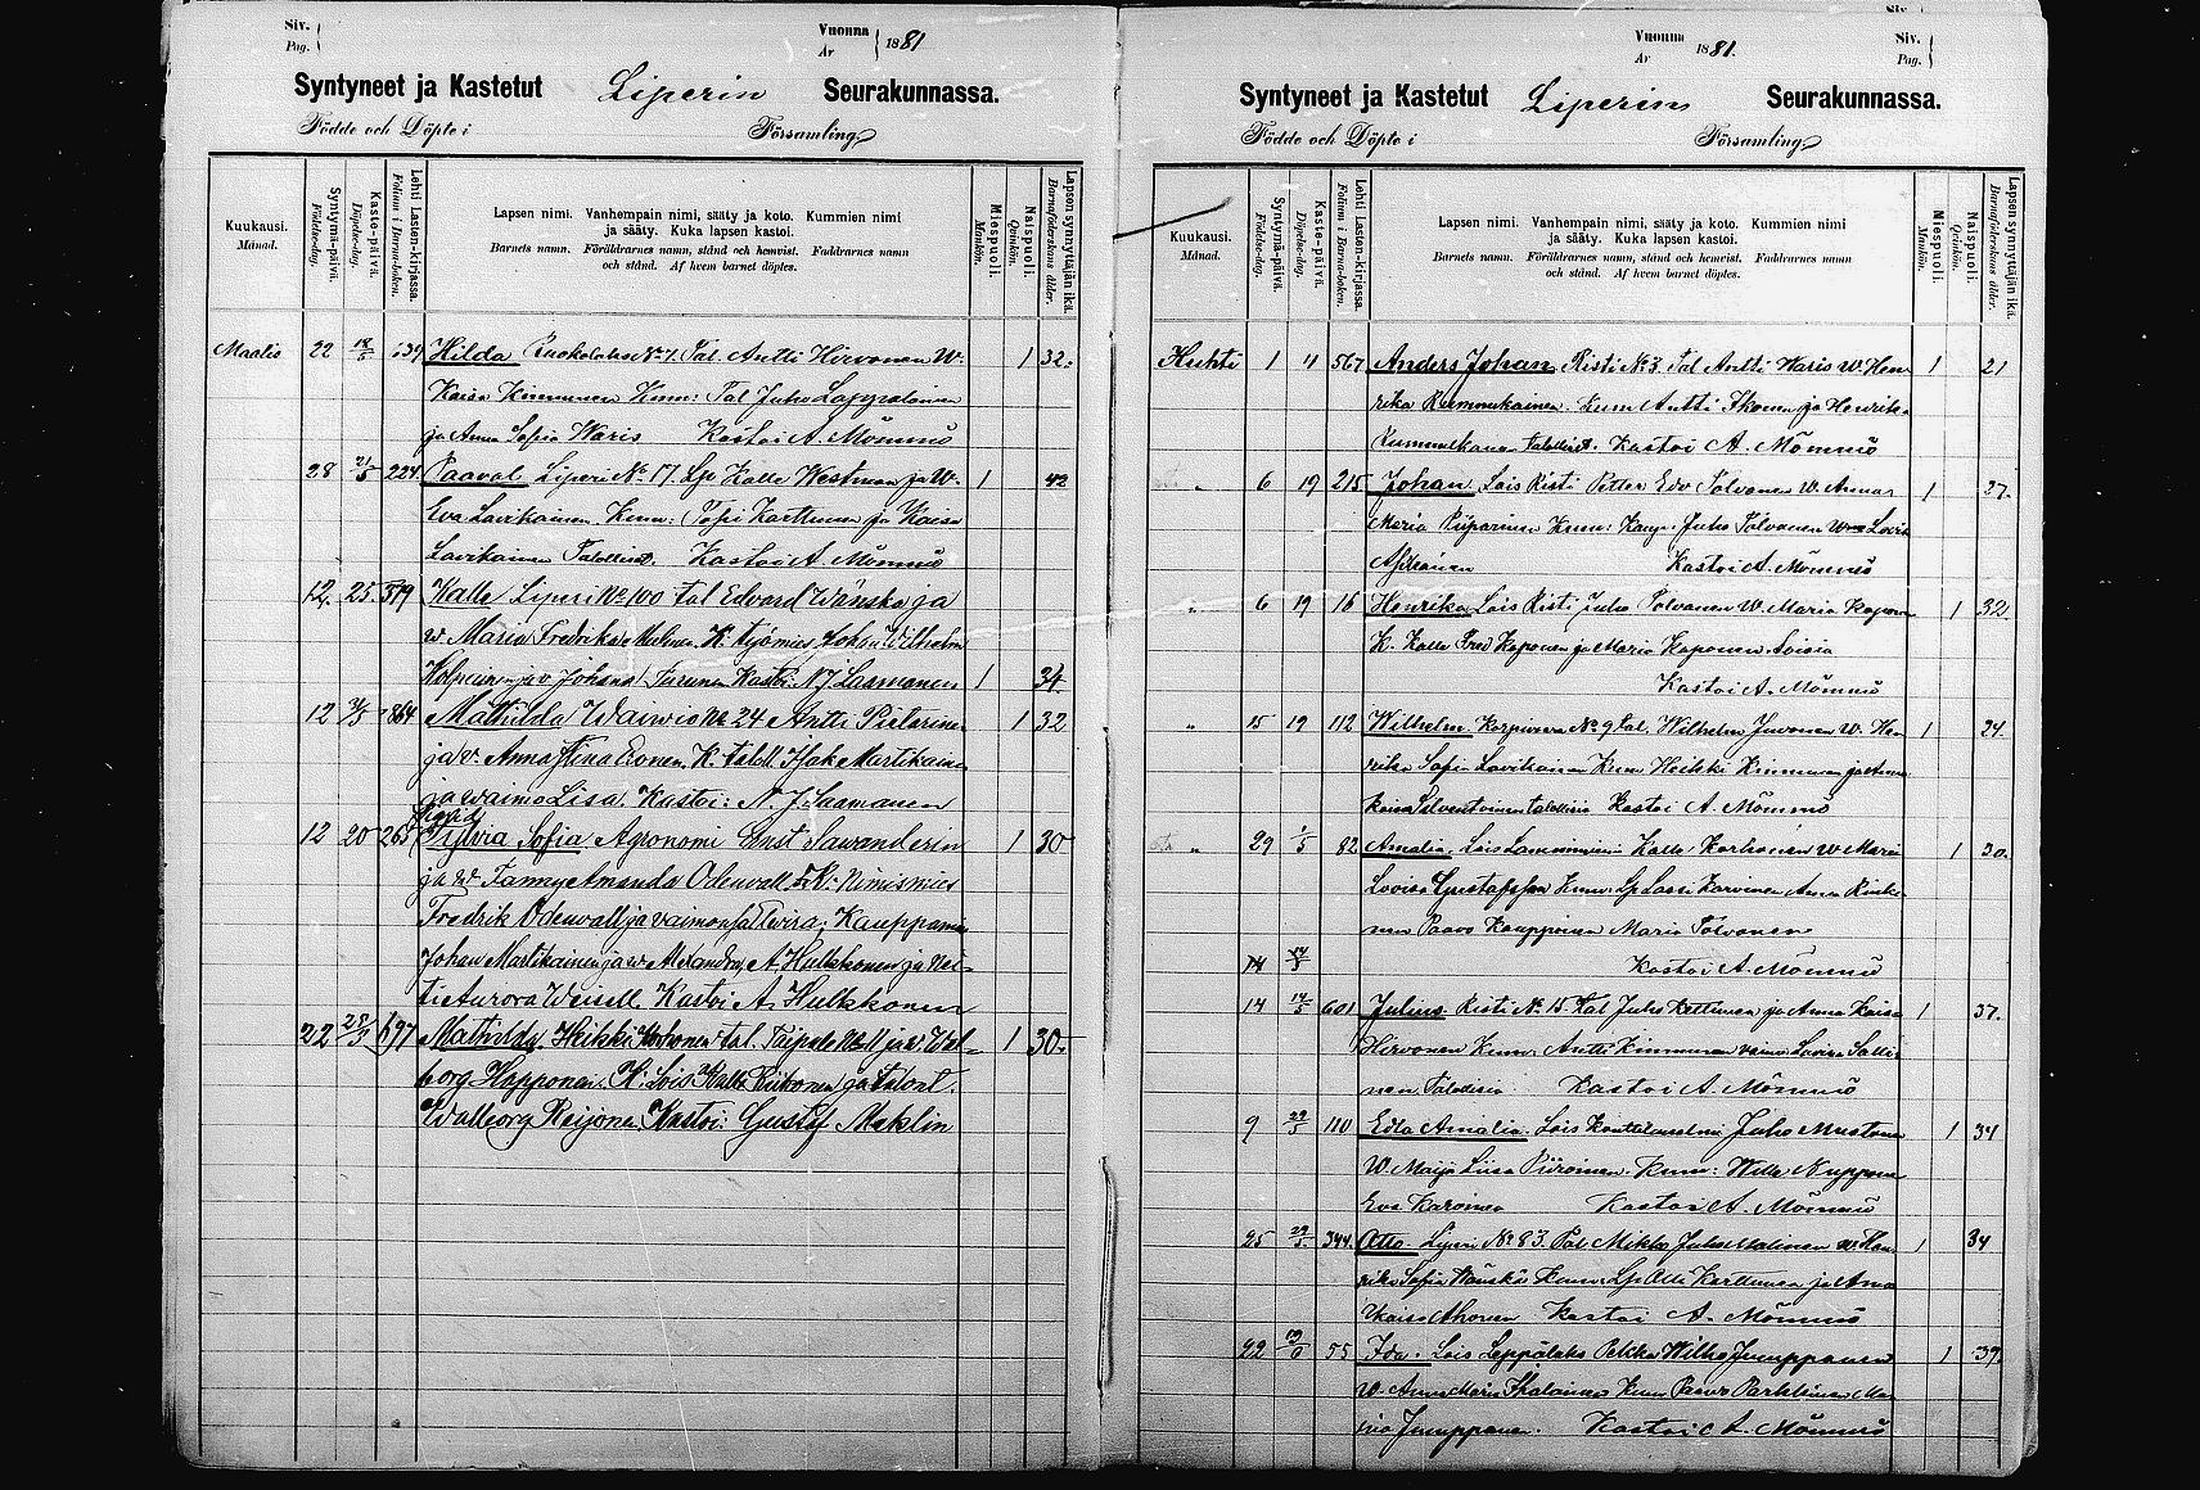 Siv.
Pag.
Vuonna
År
1881
Syntyneet ja Kastetut Liperin Seurakunnassa.
Födde och Döpte i Församling
Kuukausi.
Månad.
Syntymä-päivä.
Födelse-dag.
Kaste-päivä.
Döpelse-dag.
Lehti Lasten-kirjassa.
Folium i Barna-boken.
Lapsen nimi. Vanhempain nimi, sääty ja koto. Kummien nimi
ja sääty. Kuka lapsen kastoi.
Barnets namn. Föräldrarnes namn, stånd och hemvist. Faddrarnes namn
och stånd. Af hvem barnet döptes.
Miespuoli.
Mankön.
Naispuoli.
Qvinkön.
Lapsen synnyttäjän ikä.
Barnaföderskans ålder.
Maalis 22 18/5 Hilda No 7. Tal. Antti Hirvonen W. 1 32.
Kaisa Kinnunen Kum: Tal Juho
ja Anna Sofia Waris Kastoi A. Mömmö
28 21/5 224 Paaval Liperi No 17 Lp Kalle Westman ja W. 1 42
Eva Lavikainen. Kum: Karttunen ja Kaisa
Lavikainen Talollist. Kastoi A. Mömmö
12. 25. 379 Kalle Liperi No 100 tal Edvard Wänskä ja
w. Maria Fredrika K. työmies Johan Wilhelm
ja v Johana Turunen Kastoi N J Laamanen 1 34
12 864 Mathilda Waivio No 24 Antti Pietarinen 1 32
ja v. Anna Stina K. taloll. Isak Martikainen
ja waimo Lisa. Kastoi: N. J. Laamanen
Sigrid
12 20 265 Sylvia Sofia Agronomi Ernst Sawanderin 1 30
ja w Fanny Amanda Odenvall. K: Nimismies
Fredrik Odenvall ja vaimonsa Elvira; Kauppamies
Johan Martikainen ja w Alexandra, A. Hulkkonen ja Nei-
ti Aurora Weisell. Kastoi A. Hulkkonen
22 697 Mathilda. Heikki tal. Taipale No 11 ja w. Wal- 1 30.
borg Happonen. K: Lois Kalle Riikonen ja talont.
Walborg Reijonen. Kastoi: Gustaf Meklin
Siv.
Pag.
Vuonna
År
1881.
Syntyneet ja Kastetut Liperin Seurakunnassa.
Födde och Döpte i Församling
Kuukausi.
Månad.
Syntymä-päivä.
Födelse-dag.
Kaste-päivä.
Döpelse-dag.
Lehti Lasten-kirjassa.
Folium i Barna-boken.
Lapsen nimi. Vanhempain nimi, sääty ja koto. Kummien nimi
ja sääty. Kuka lapsen kastoi.
Barnets namn. Föräldrarnes namn, stånd och hemvist. Faddrarnes namn
och stånd. Af hvem barnet döptes.
Miespuoli.
Mankön.
Naispuoli.
Qvinkön.
Lapsen synnyttäjän ikä.
Barnaföderskans ålder.
Huhti 1 4 567 Anders Johan Risti No 3. Tal Antti Waris W. Hen 1 21
rika Kum Antti Ikonen ja Henrika
Kastoi A. Mömmö
" 6 19 215 Johan Lois Risti Petter Edv Tolvanen W. Anna 1 27.
Maria Piiparinen Kum: Juho Tolvanen Lovisa
Kastoi A. Mömmö
" 6 19 16 Henrika Lois Risti Juho Tolvanen W. Maria Kaponen 1 32.
K. Kalle Fred Kaponen ja Maria Kaponen Loisia
Kastoi A. Mömmö
" 15 19 112 Wilhelm Korpivaara No 9 tal. Wilhelm Juvonen W. Hen 1 24.
rika Sofia Lavikainen Kum Heikki Kinnunen ja Anna
Kaisa Silventoinen talollisia Kastoi A. Mömmö
" 29 1/5 82 Amalia. Lois Kalle Korhonen W Maria 1 30.
Lovisa Gustafsson Kum: Lp Lassi Karvinen Anna
Paavo Kauppinen Maria Tolvanen
14 Kastoi A. Mömmö
14 14/5 601 Julius Risti No 15. tal Juho Kettunen ja Anna Kaisa 1 37.
Hirvonen Kum. Antti Kinnunen vaimo Lovisa Salli
nen Talollisia Kastoi A. Mömmö
9 29/5 110 Edla Amalia. Lois Juho Mustonen 1 34
W. Maija Liisa Piiroinen. Kum: Wille Nupponen
Eva Karvinen Kastoi A. Mömmö
25 29/5 344. Otto. Liperi No 83. Tal. Mikko Juho Malinen w. Hen 1 34
rika Sofia Wänskä Kum: Lp Olli Karttunen ja Anna
Kaisa Ahonen Kastoi A. Mömmö
22 19/6 55 Ida. Lois Leppälahti Pekka Wilho Jumppanen 1 39.
W. Anna Maria Ihalainen Kum Paavo Parkkinen Ma
ria Jumppanen. Kastoi A. Mömmö